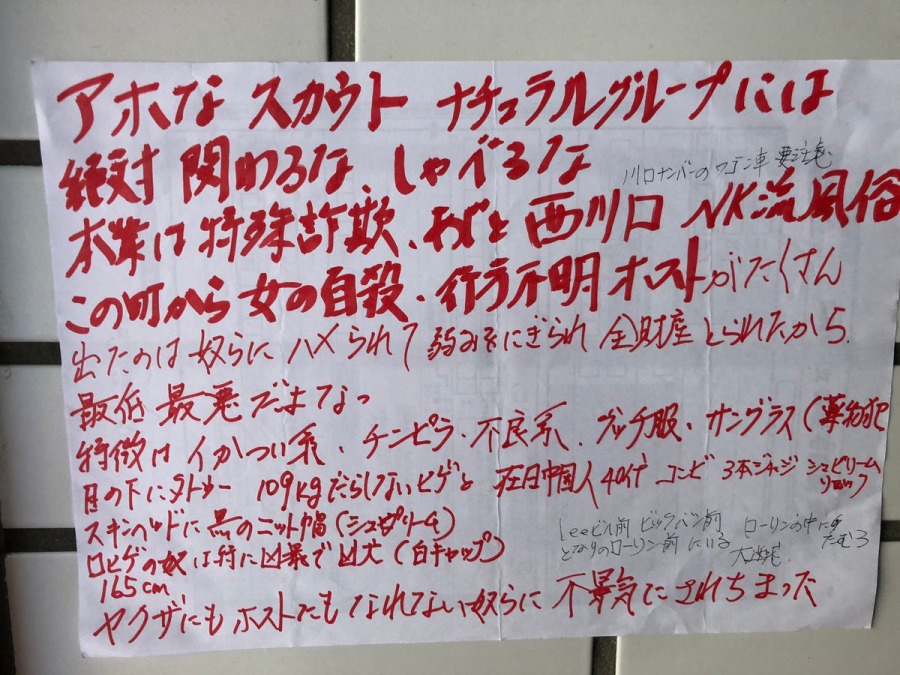 アホな スカウト ナチュラルグループには
絶対 関わるな、しゃべるな
川口ナンバーのワゴン車 要注意
本業は特殊詐欺、あと 西川口 NK流風俗
この町から女の自殺、行方不明 ホストがたくさん
出たのは奴らに ハメられて 弱みをにぎられ 全財産とられたから
最低 最悪だよなっ
特徴は イかつい系、チンピラ・不良系、グッチ服・サングラス(薬物
目の下にタトゥー 109kgだらしないヒゲと 在日中国人 40代 コンビ 3本ジャージ シュプリーム
スキンヘッドに黒のニット帽(シュプリーム)
Leeビル前 ビックバン前 ローソンの中に
となりのローソン前にいる たむろ
ロヒゲの奴は特に凶暴で (白キャップ)
165cm
ヤクザにもホストにもなれてない奴らに 不景気にされちまった